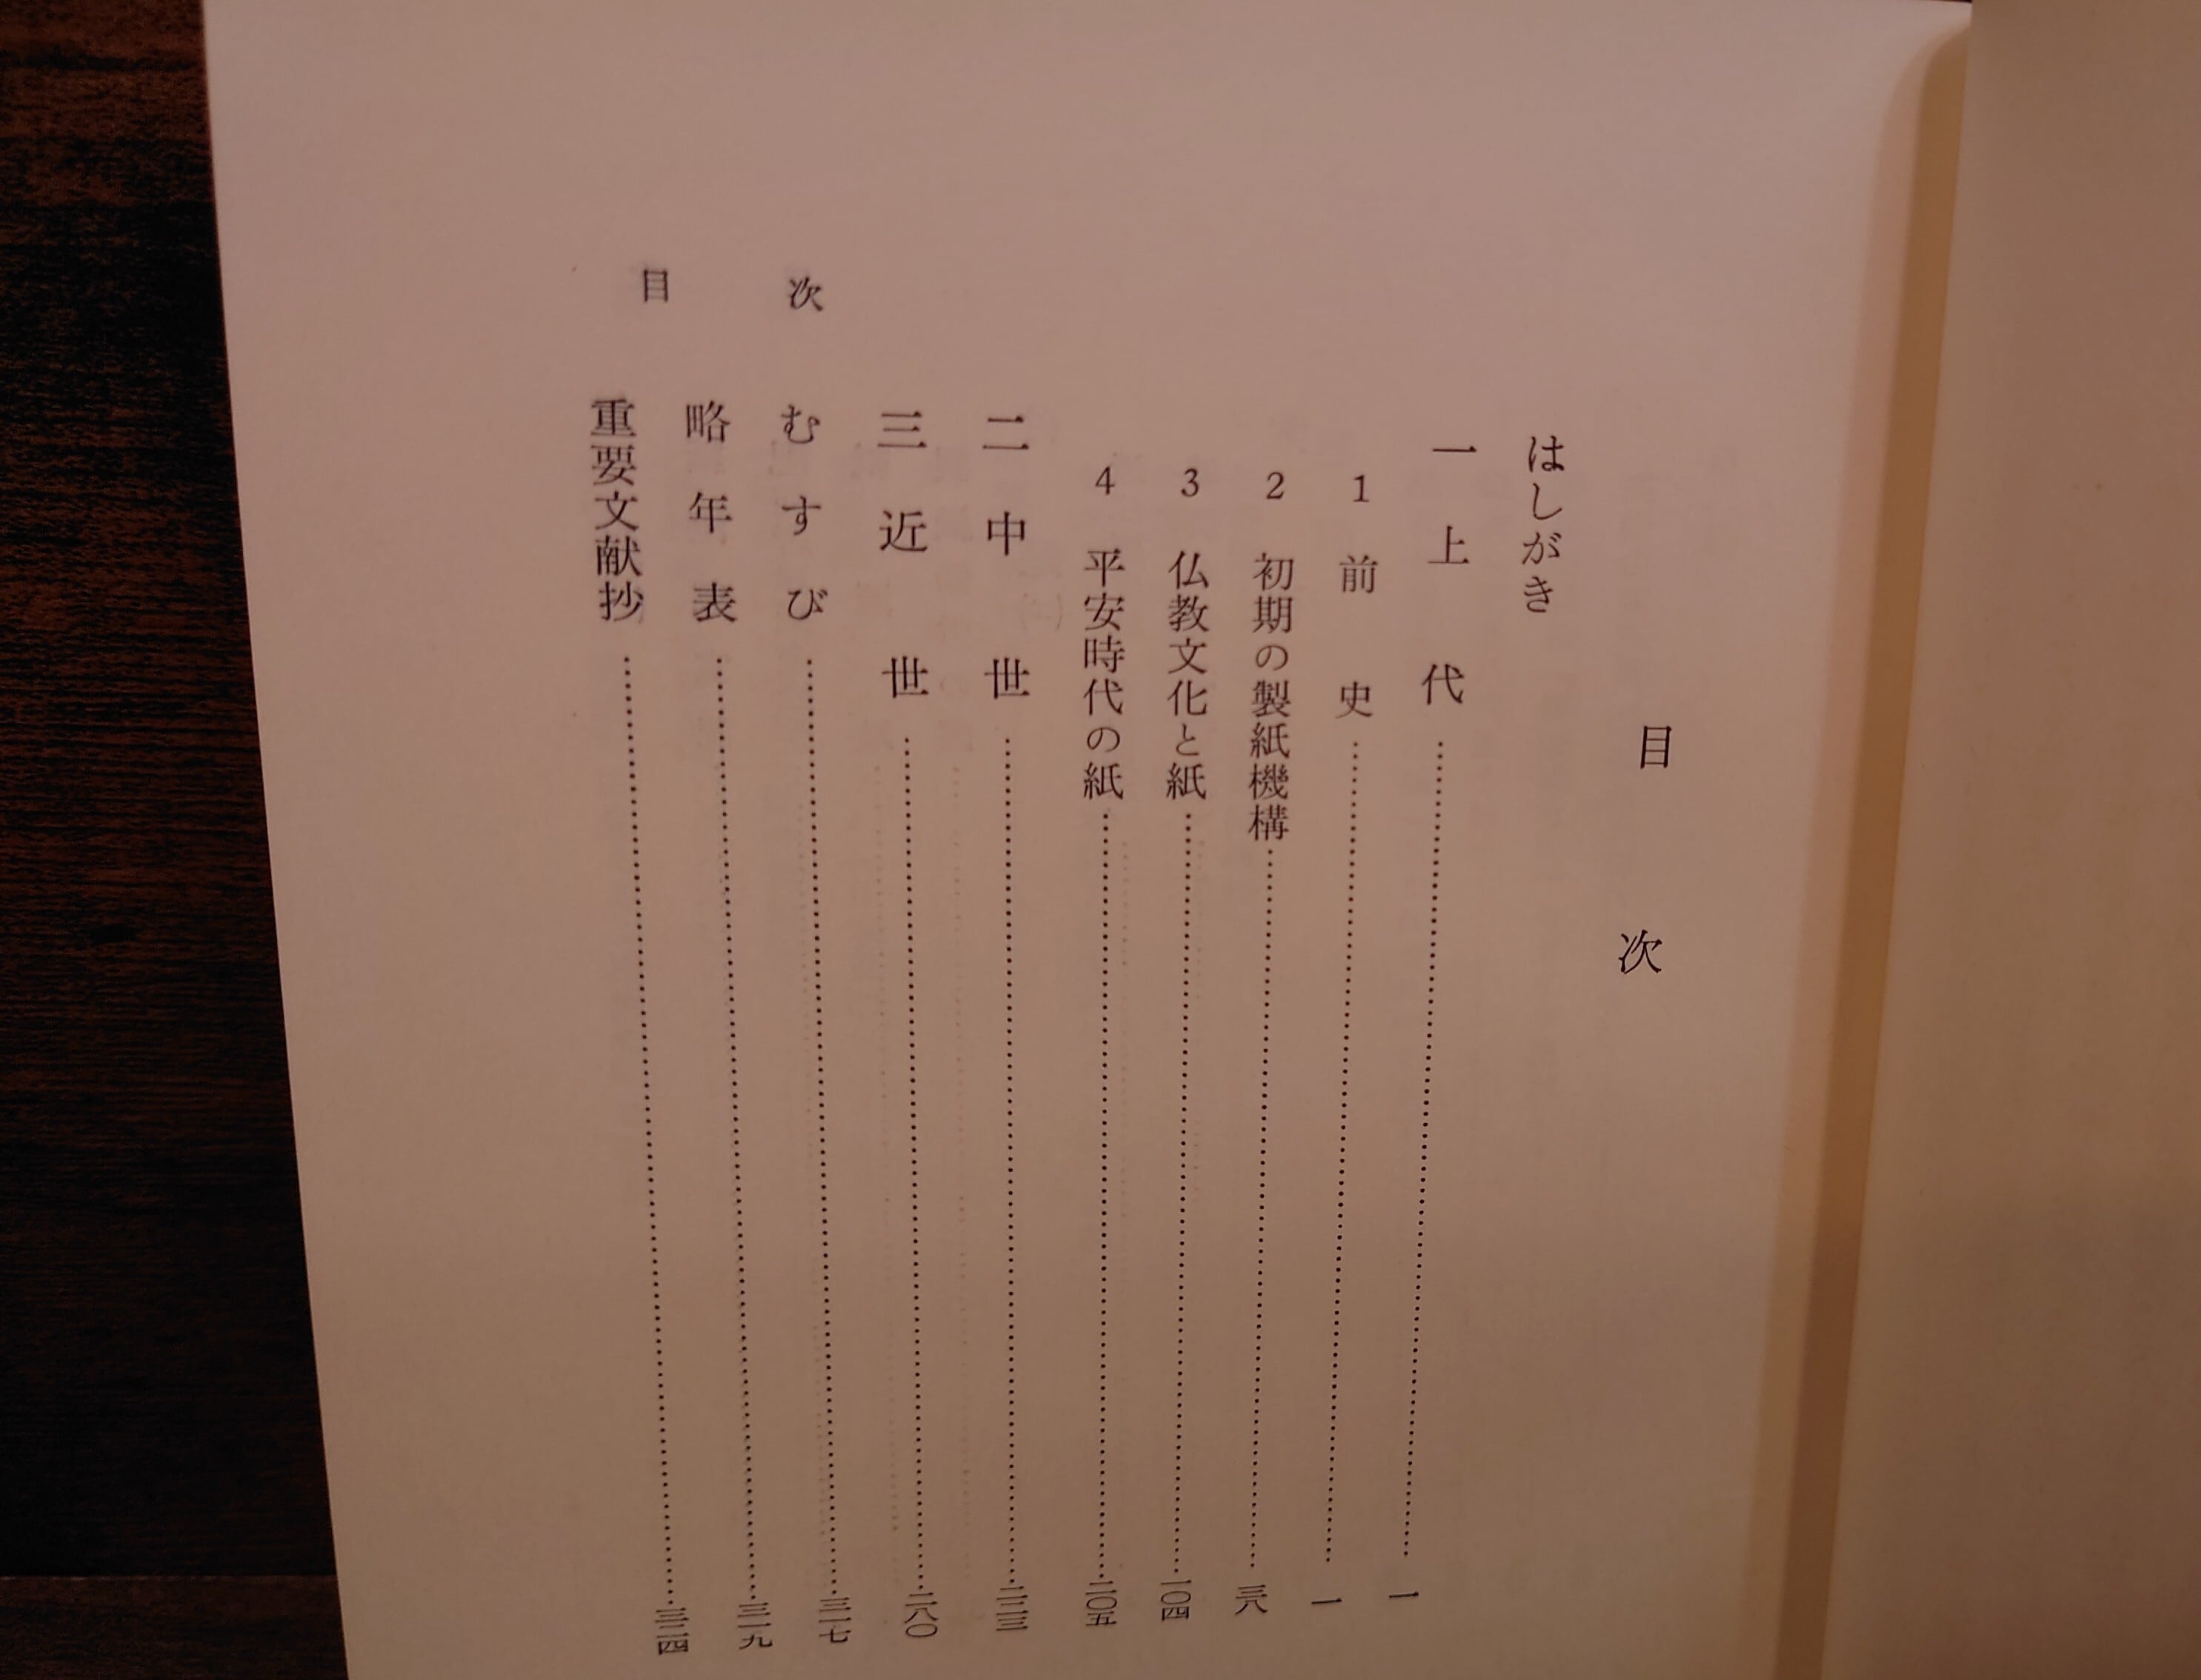 目次
はしがき
一 上代……一
1 前史……一
2 初期の製紙機構……三八
3 仏教文化と紙……一〇四
4 平安時代の紙……二〇五
二 中世……二二三
三 近世……二八〇
むすび……三一七
略年表……三一九
重要文献抄……三二四
目次